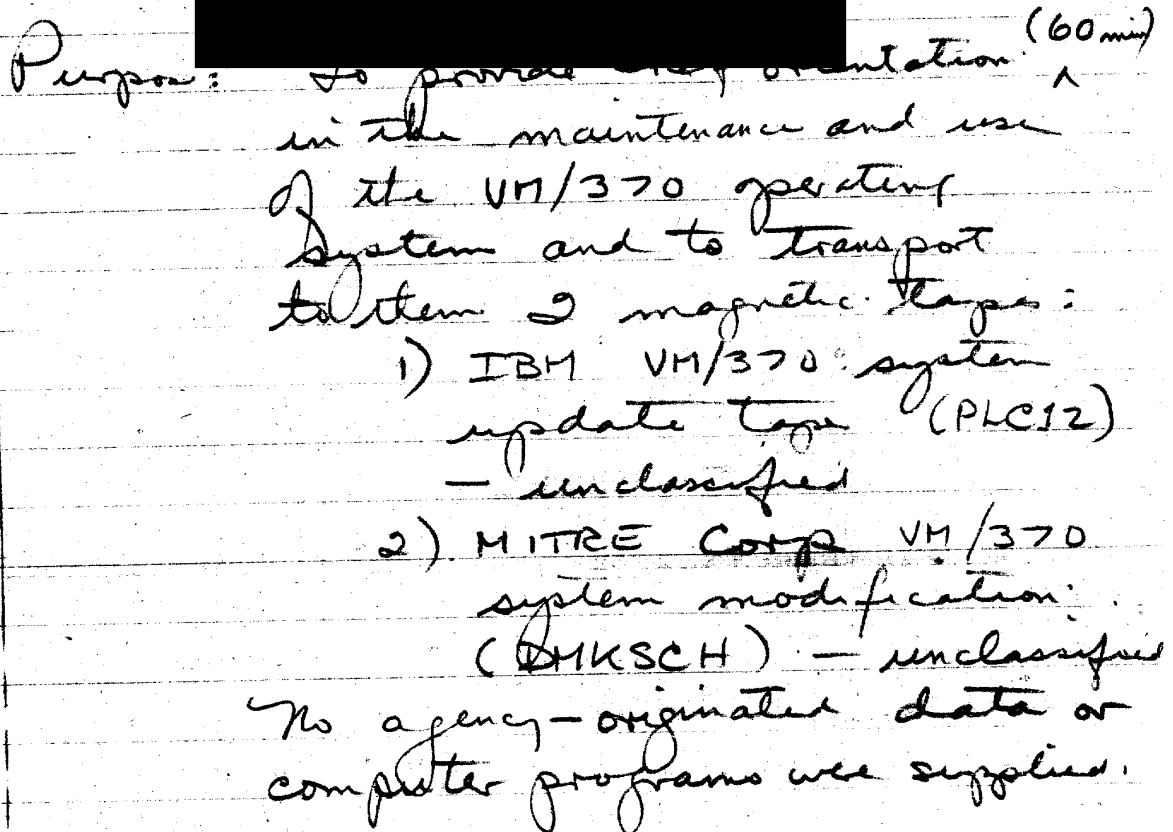 (60 min)
Purpose: to provide orientation ^
in the maintenance and use
of the VM/370 operating
system and to transport
to them 2 magnetic tapes:
1) IBM VM/370 system
update tape (PLC12)
— unclassified
2) MITRE Corp VM/370
system modification
(DMKSCH) — unclassified
No agency-originated data or
computer programs were supplied.